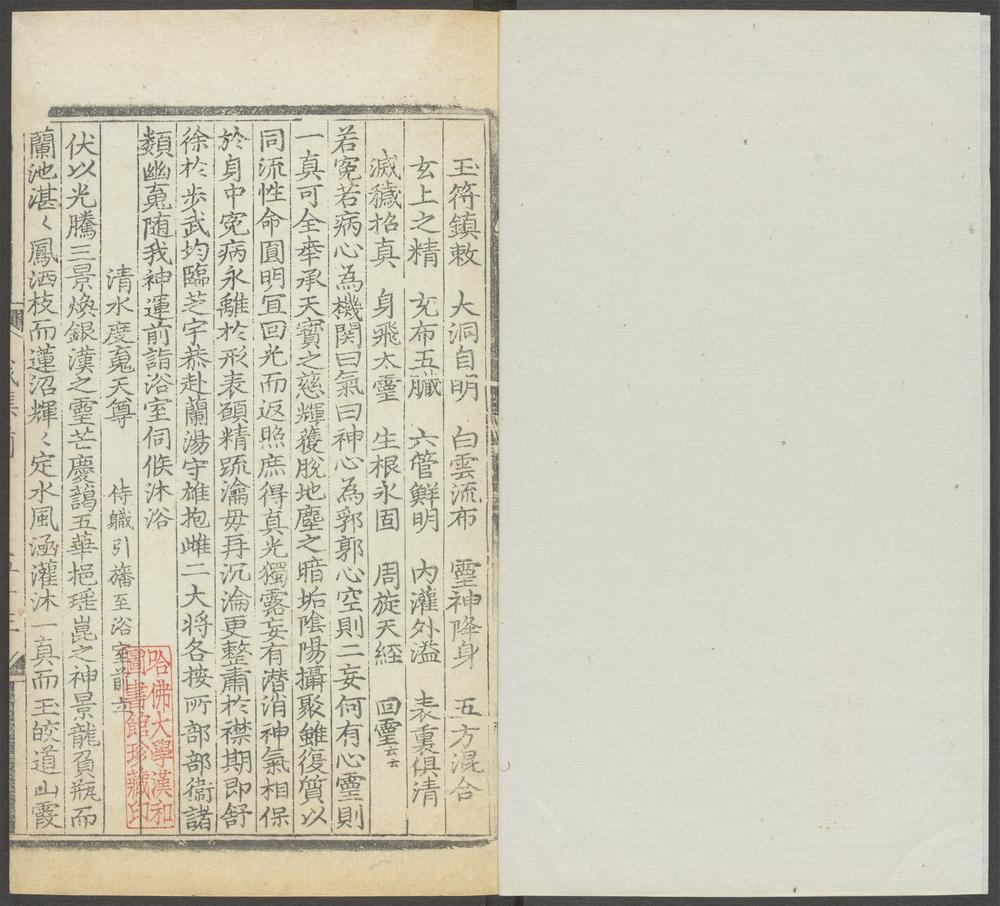 玉符鎮敕　大洞自明　白雲流布　霊神降身　五方混合
玄上之精　充布五臟　六管鮮明　内灌外溢　表裏俱清
滅穢招真　身飛太霊　生根永固　周旋天經　回霊云云
若寃若病心為機関曰氣曰神心為郛郭心空則二妄何有心霊則
一真可全奉承天寳之慈輝獲脫地塵之暗垢陰陽攝聚雖復質以
同流性命圓明冝回光而返照庶得真光獨露妄有潜消神氣相保
於身中寃病永離於形表頋精䟽瀹毋再沉淪更整肅於襟期即舒
徐於步武均臨芝宇恭赴蘭湯守雄抱雌二大将各按所部部衛諸
類幽䰟随我神運前詣浴室伺候沐浴
清水度䰟天尊　侍軄引旛至浴室前立
伏以光騰三景煥銀漢之霊芒慶藹五華挹瑶崑之神景龍負瓶而
蘭池湛〻鳳洒枝而蓮沼輝〻定水風涵灌沐一真而玉皎道山霞
哈佛大學漢和
圖書館珍藏印